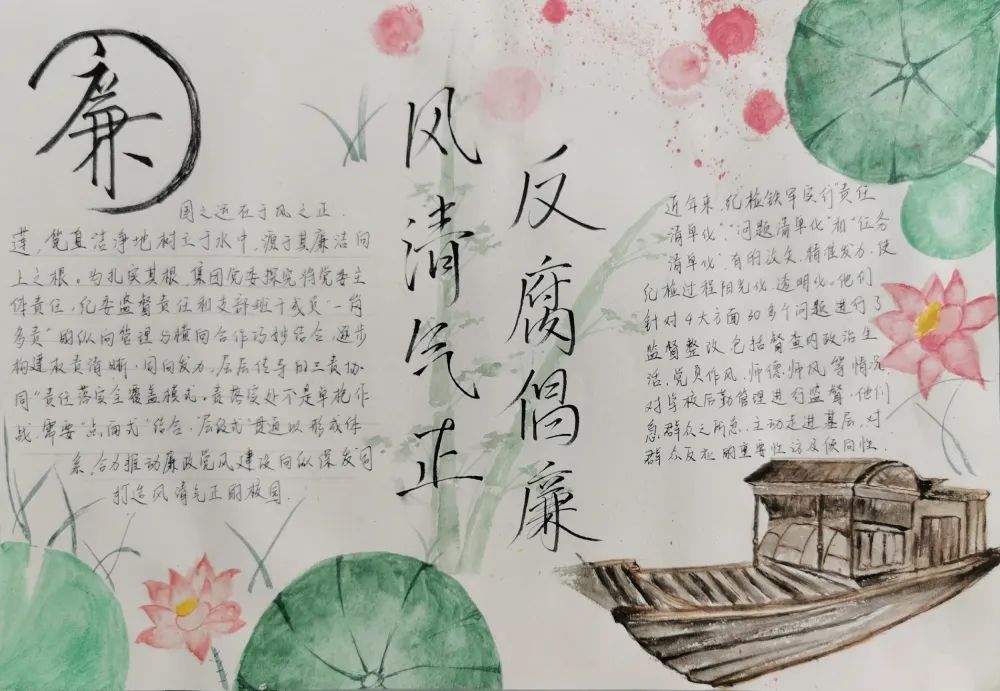 廉
国之运在于风之正.
莲,凭直洁净地树立于水中,源于其廉洁向
上之根。为扎实其根,集团党委探究将党委主
体责任,纪委监督责任和支部班子成员"一岗
多责"的纵向管理与横向合作巧妙结合,逐步
构建权责清晰,同向发力,层层传导的三责协
同"责任落实全覆盖模式。责落实处不是单枪作
战,需要"点,面式"结合,"层级式"贯通以形成体
系,合力推动廉政党风建设向纵深发
打造风清气正的校园.
风清气正
反腐倡廉
近年来,纪检铁军实行"责任
清单化","问题清单化"和"任务
清单化",有的放矢,精准发力,使
纪检过程阳光化,透明化。他们
针对4大方面30多个问题进行了
监督整改,包括督查内政治生
活,党员作风,师德,师风等情况,
对学校后勤管理进行监督,他们
急群众之所急,主动走进基层,对
群众反应的重要性访及倾向性.